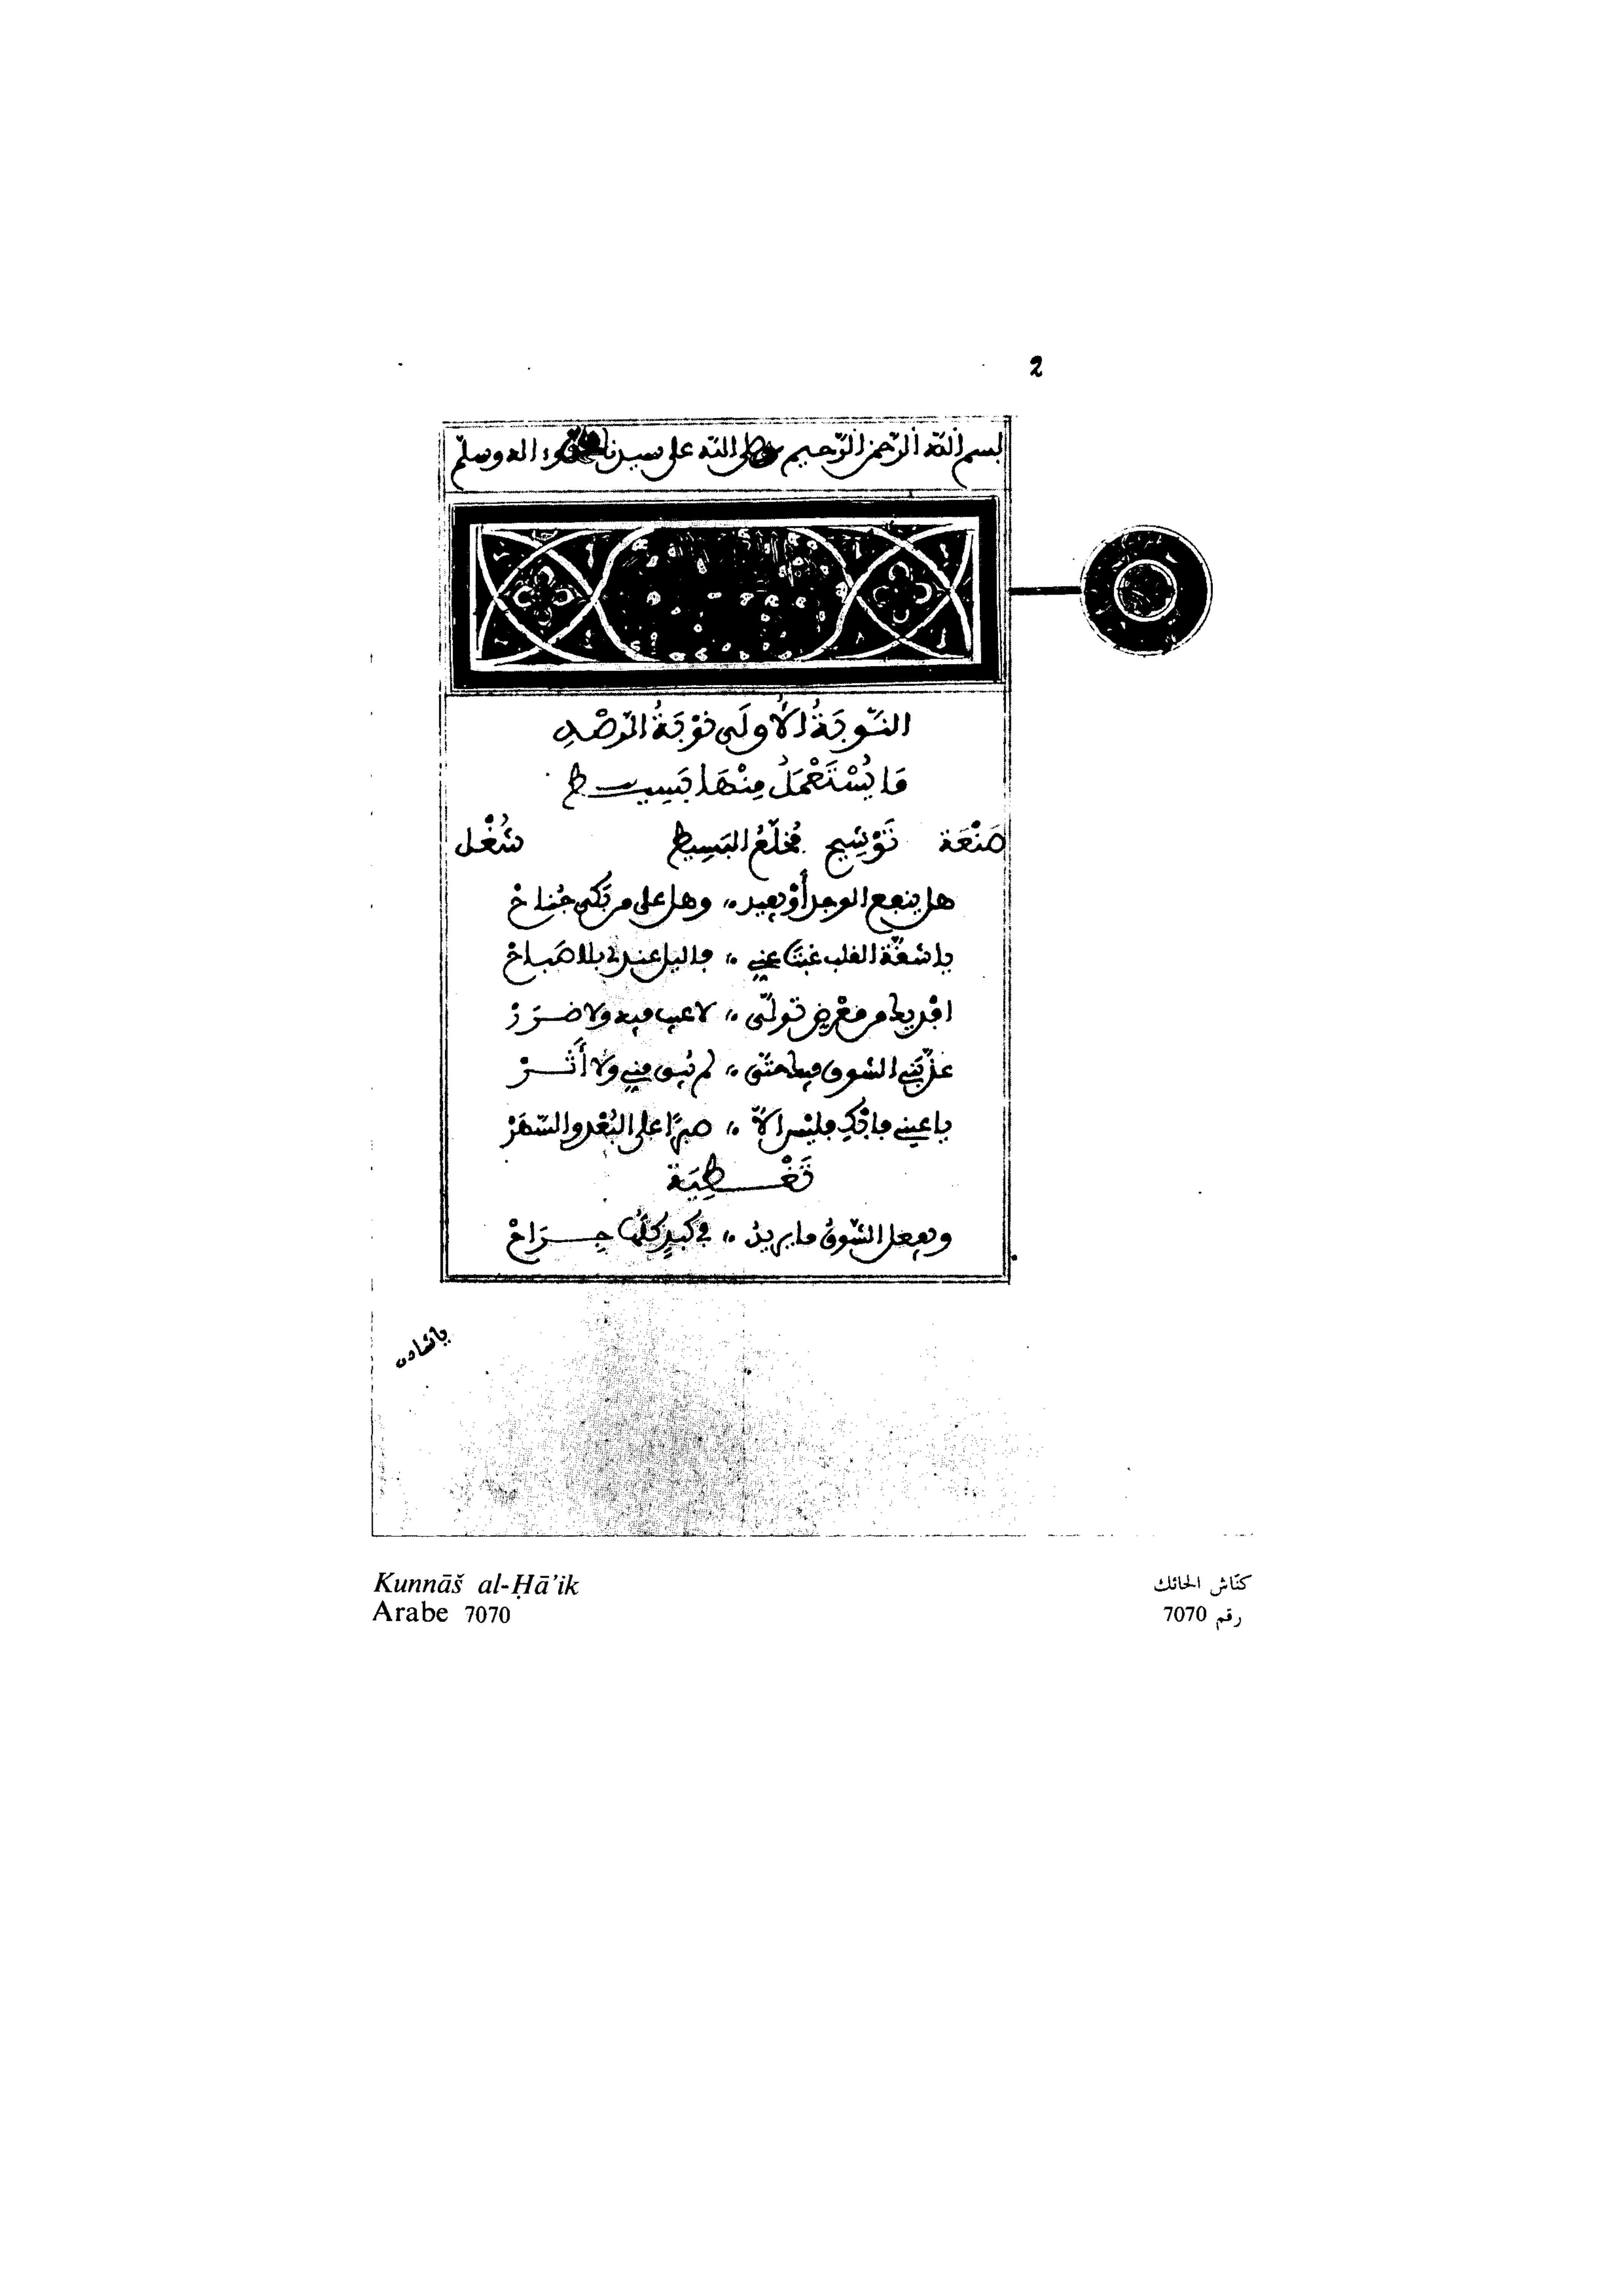 2
بسم الله الرحمن الرحيم صلى الله على سيدنا محمد واله وسلم
النَّوبَةُ الأُولَى نَوْبَةُ الرَّصْدِ
مَا يُسْتَعْمَلُ مِنْهَا بَسِيط
صَنْعَة تَوْشِيح مُخَلَّعُ البَسِيطِ شُغْل
هل ينفع الوجد أوْ يفيد ،، وهل على من بَكَى جُناحْ
يا شقّة القلب غبتَ عني ،، فاليل عندي بلا صَباحْ
افْدِيه من مُعْرِضٍ تولّى ،، لا عيب فيه ولا ضَرَرْ
عذّبَني الشوق فيه حتّى ،، لم يُبق مني ولا أَثَرْ
يا عيني فابْكِ فليْس إلاّ ،، صبرًا على البُعْدِ والسّهَرْ
تَغْطِيَة
ويفعل الشّوقُ ما يريدْ ،، في كبِدٍ كلّها جِرَاحْ
يا شادن
Kunnāš al-Ḥā'ik
Arabe 7070
كنّاش الحائك
رقم 7070